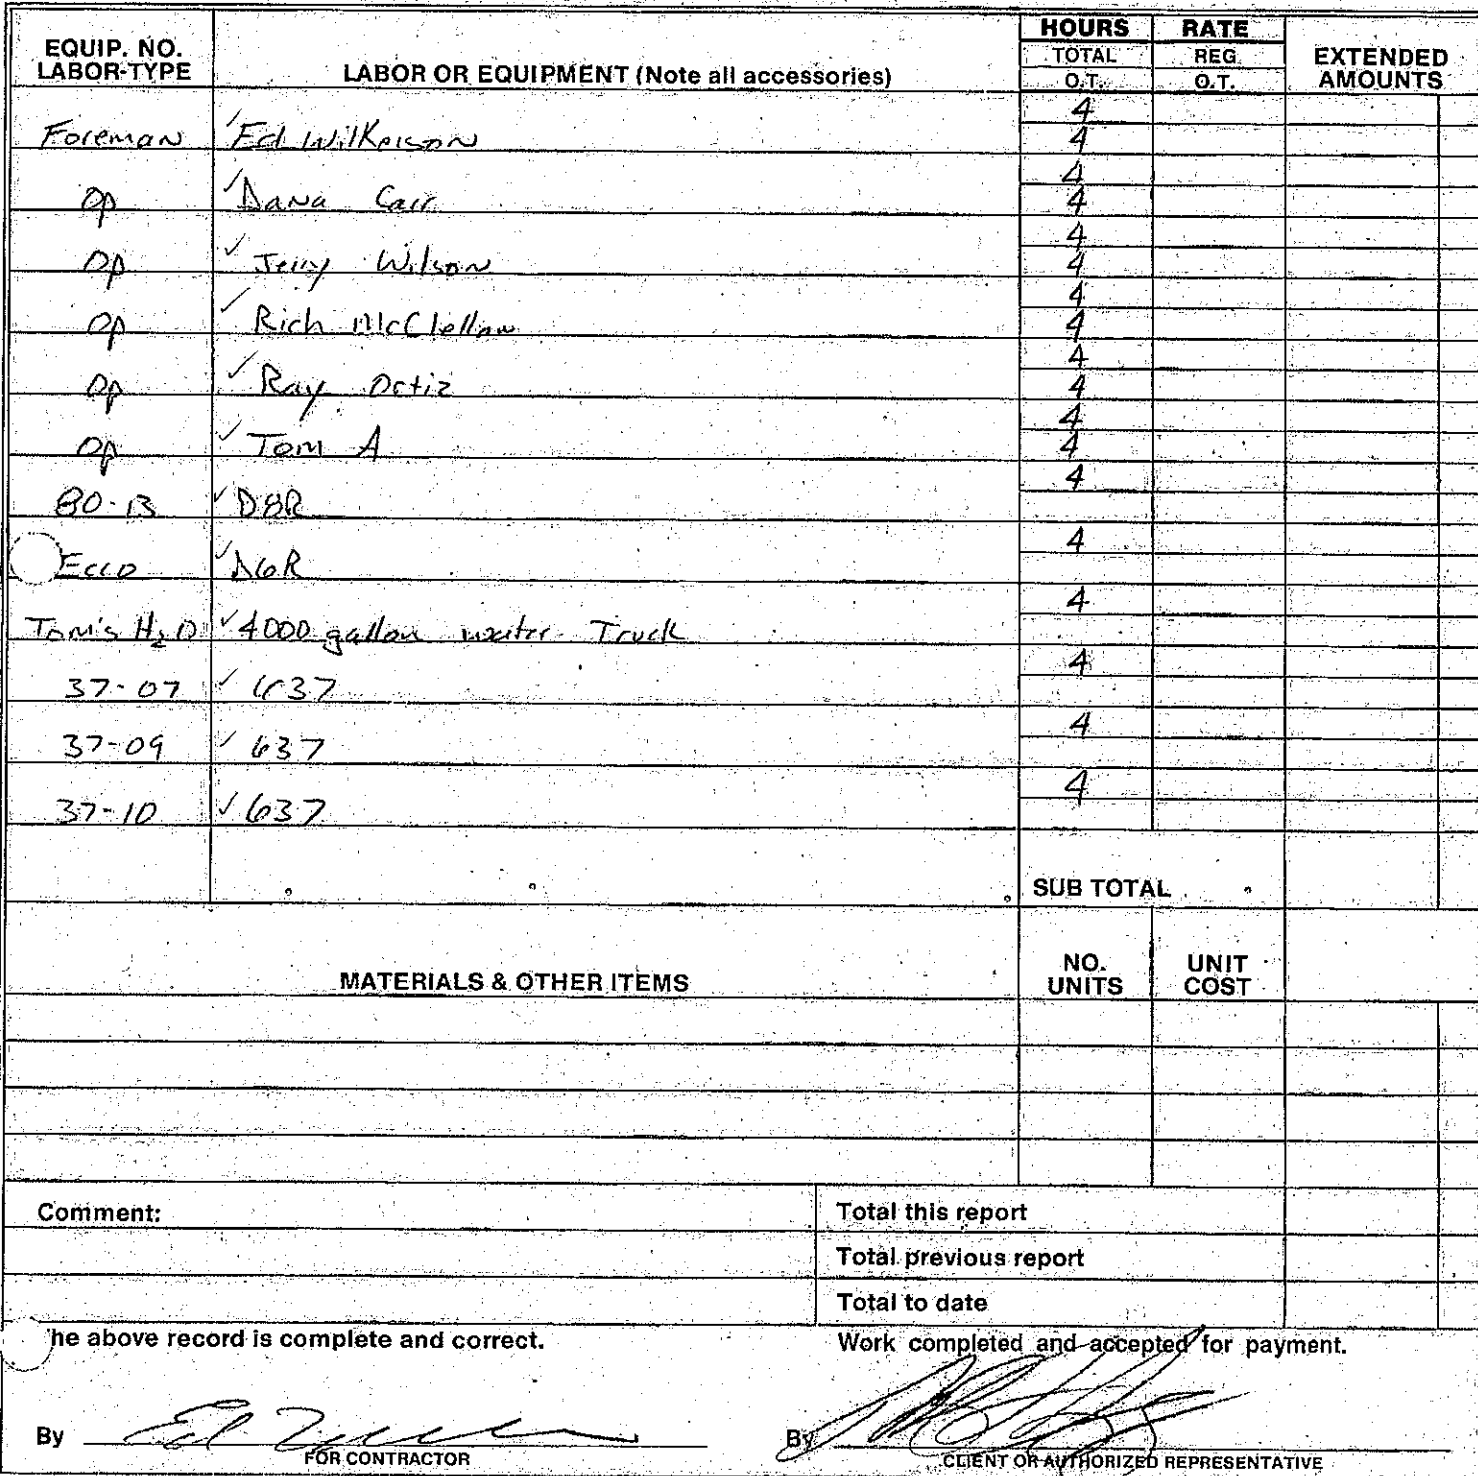 EQUIP. NO.
LABOR-TYPE
LABOR OR EQUIPMENT (Note all accessories)
HOURS
TOTAL
O.T.
RATE
REG
O.T.
EXTENDED
AMOUNTS
4
Foreman ✓ Ed Wilkerson 4
4
Op ✓ Dana Carr 4
4
Op ✓ Jerry Wilson 4
4
Op ✓ Rich McClellan 4
4
Op ✓ Ray Ortiz 4
4
Op ✓ Tom A 4
4
80-13 ✓ D8R
4
✓ D6R
4
Tom's H2O ✓ 4000 gallon water Truck
4
37-07 ✓ 637
4
37-09 ✓ 637
4
37-10 ✓ 637
SUB TOTAL
MATERIALS & OTHER ITEMS
NO.
UNITS
UNIT
COST
Comment:
Total this report
Total previous report
Total to date
he above record is complete and correct.
Work completed and accepted for payment.
By Ed
FOR CONTRACTOR
By
CLIENT OR AUTHORIZED REPRESENTATIVE